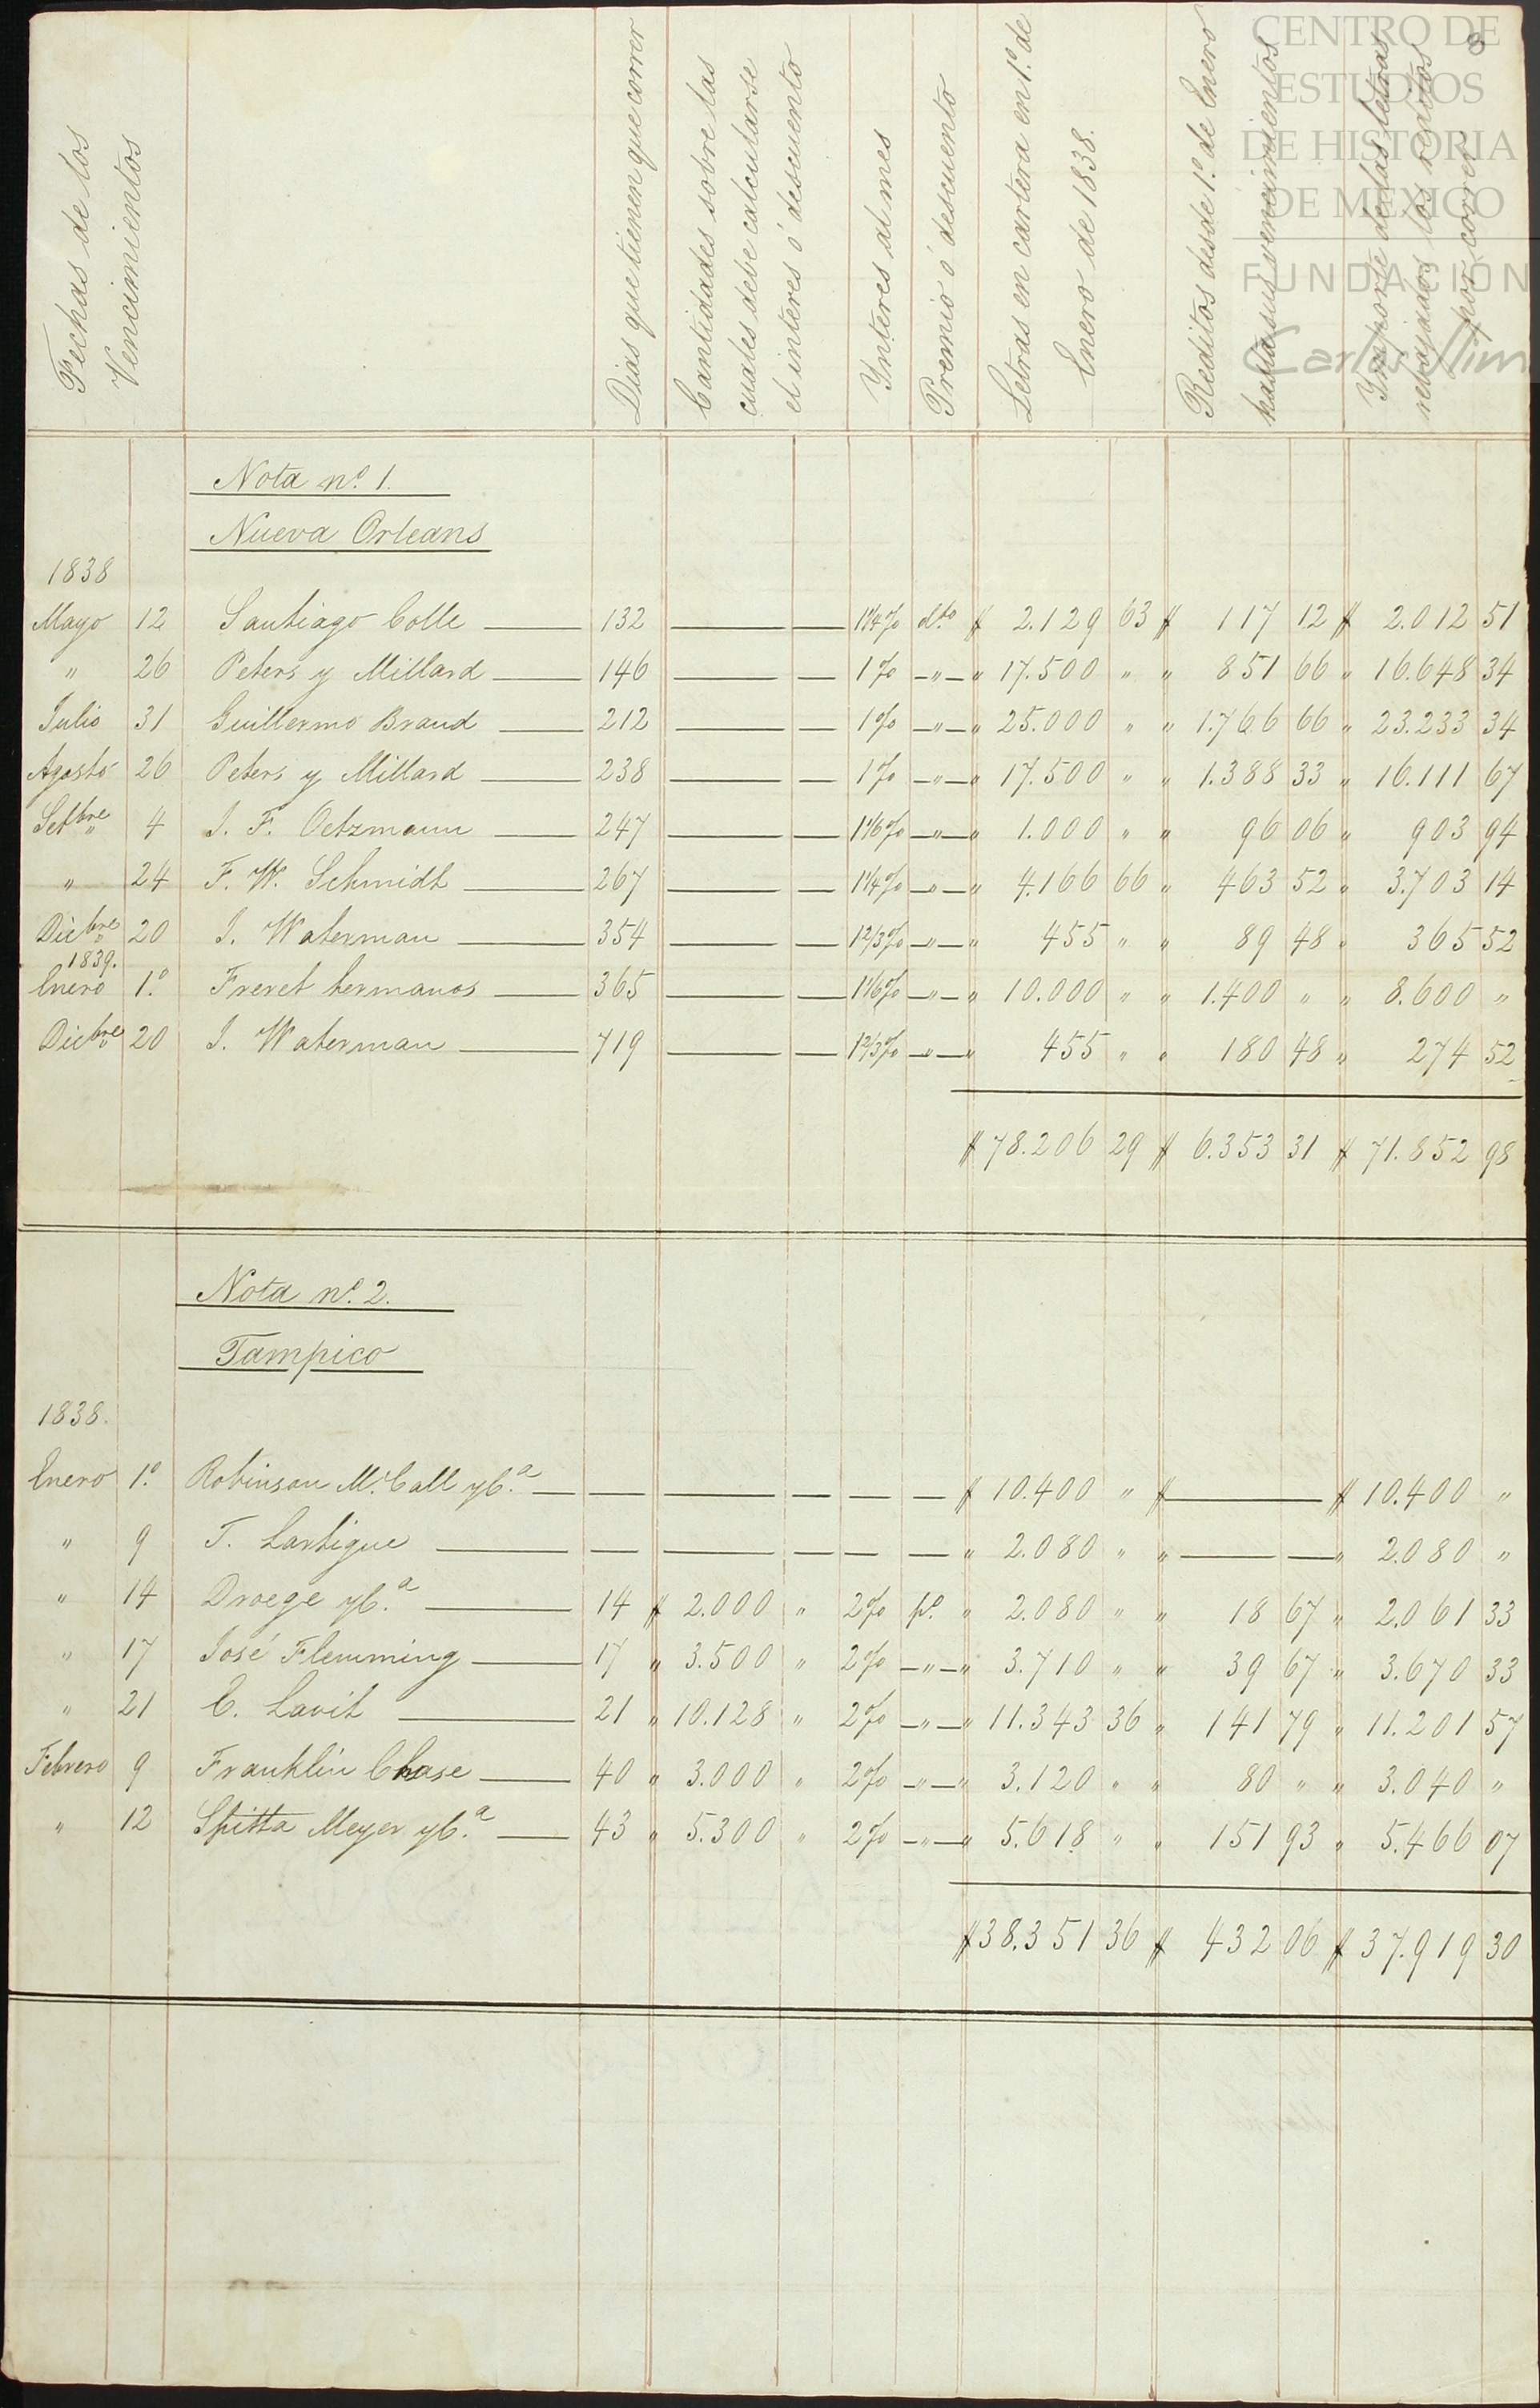 8
CENTRO DE
ESTUDIOS
DE HISTORIA
DE MEXICO
FUNDACIÓN
Carlos Slim
Fechas de los
Vencimientos
Dias que tienen que correr
Cantidades sobre las
cuales debe calcularse
el interes ó descuento
Interes al mes
Premio ó descuento
Letras en cartera en 1º. de
Enero de 1838.
Reditos desde 1º. de Enero
hasta sus vencimientos
Importe de las letras
rebajados los reditos
por correr
Nota nº. 1.
Nueva Orleans
1838
Mayo 12 Santiago Colle — 132 — — 1¼% dto $ 2.129 63 $ 117 12 $ 2.012 51
" 26 Peters y Millard — 146 — — 1% —"— " 17.500 " " 851 66 " 16.648 34
Julio 31 Guillermo Brand — 212 — — 1% —"— " 25.000 " " 1.766 66 " 23.233 34
Agosto 26 Peters y Millard — 238 — — 1% —"— " 17.500 " " 1.388 33 " 16.111 67
Setbre 4 J. F. Oetzmann — 247 — — 1 1/6% —"— " 1.000 " " 96 06 " 903 94
" 24 F. W. Schmidt — 267 — — 1¼% —"— " 4.166 66 " 463 52 " 3.703 14
Dicbre 20 J. Waterman — 354 — — 1 2/3% —"— " 455 " " 89 48 " 365 52
1839.
Enero 1º. Freret hermanos — 365 — — 1 1/6% —"— " 10.000 " " 1.400 " " 8.600 "
Dicbre 20 J. Waterman — 719 — — 1 2/3% —"— " 455 " " 180 48 " 274 52
$ 78.206 29 $ 6.353 31 $ 71.852 98
Nota nº. 2.
Tampico
1838.
Enero 1º. Robinson Mc.Call y C.a — — — — — — $ 10.400 " $ — $ 10.400 "
" 9 T. Lartigue — — — — — — " 2.080 " " — — " 2.080 "
" 14 Droege y C.a — 14 $ 2.000 " 2% pº. " 2.080 " " 18 67 " 2.061 33
" 17 José Flemming — 17 " 3.500 " 2% —"— " 3.710 " " 39 67 " 3.670 33
" 21 C. Lavit — 21 " 10.128 " 2% —"— " 11.343 36 " 141 79 " 11.201 57
Febrero 9 Franklin Chase — 40 " 3.000 " 2% —"— " 3.120 " " 80 " " 3.040 "
" 12 Spitta Meyer y C.a — 43 " 5.300 " 2% —"— " 5.618 " " 151 93 " 5.466 07
$ 38.351 36 $ 432 06 $ 37.919 30